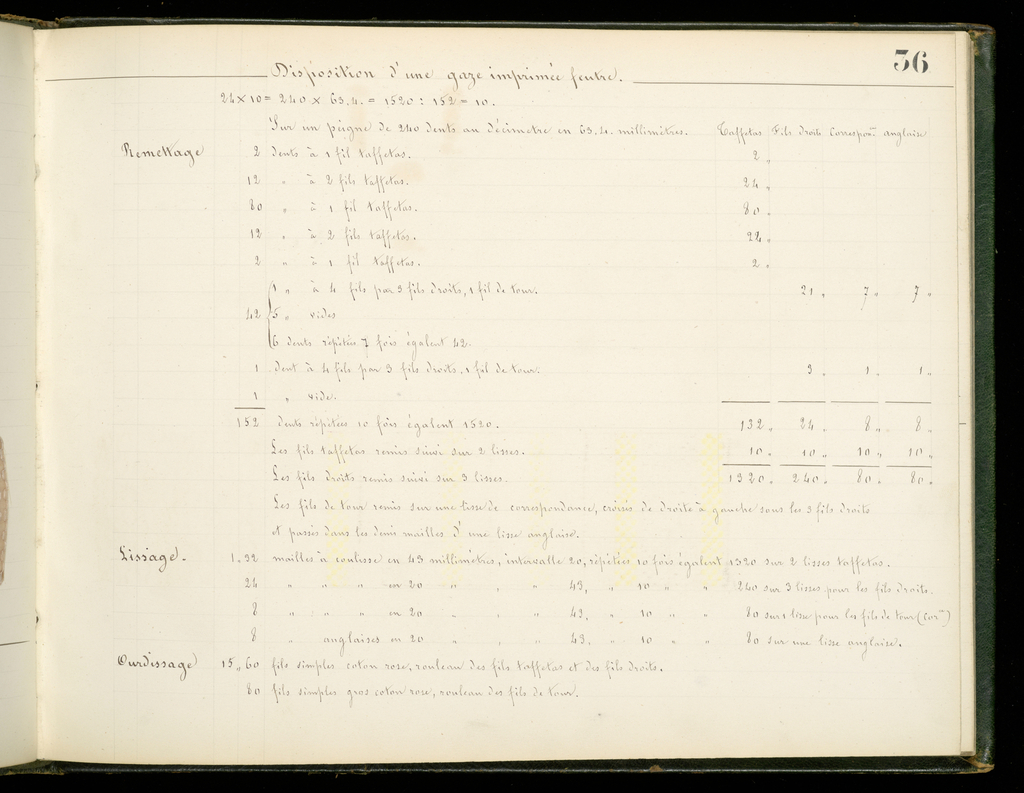 56
Disposition d'une gaze imprimée feutre.
24 x 10 = 240 x 63.4. = 1520 : 152 = 10.
Sur un peigne de 240 dents au décimetre en 63.4. millimètres. Taffetas Fils droits Correspon^ce anglaise
Remettage 2 dents à 1 fil taffetas. 2 "
12 " à 2 fils taffetas. 24 "
80 " à 1 fil taffetas. 80 "
12 " à 2 fils taffetas. 24 "
2 " à 1 fil taffetas. 2 "
1 " à 4 fils par 3 fils droits, 1 fil de tour. 21 " 7 " 7 "
42 { 5 " vides
6 dents répétées 7 fois égalent 42.
1 dent à 4 fils par 3 fils droits, 1 fil de tour. 3 " 1 " 1 "
1 " vide.
152 dents répétées 10 fois égalent 1520. 132 " 24 " 8 " 8 "
Les fils taffetas remis suivi sur 2 lisses. 10 " 10 " 10 " 10 "
Les fils droits remis suivi sur 3 lisses. 1320 " 240 " 80 " 80 "
Les fils de tour remis sur une lisse de correspondance, croisés de droite à gauche sous les 3 fils droits
et passés dans les demi mailles d'une lisse anglaise.
Lissage. 1.32 mailles à coulisse en 43 millimètres, intervalle 20, répétées 10 fois égalent 1320 sur 2 lisses taffetas.
24 " " " en 20 " , " 43, " 10 " " 240 sur 3 lisses pour les fils droits.
8 " " " en 20 " , " 43, " 10 " " 80 sur 1 lisse pour les fils de tour (Cor^ce)
8 " anglaises en 20 " , " 43, " 10 " " 80 sur une lisse anglaise.
Ourdissage 15 " 60 fils simples coton rose, rouleau des fils taffetas et des fils droits.
80 fils simples gros coton rose, rouleau des fils de tour.